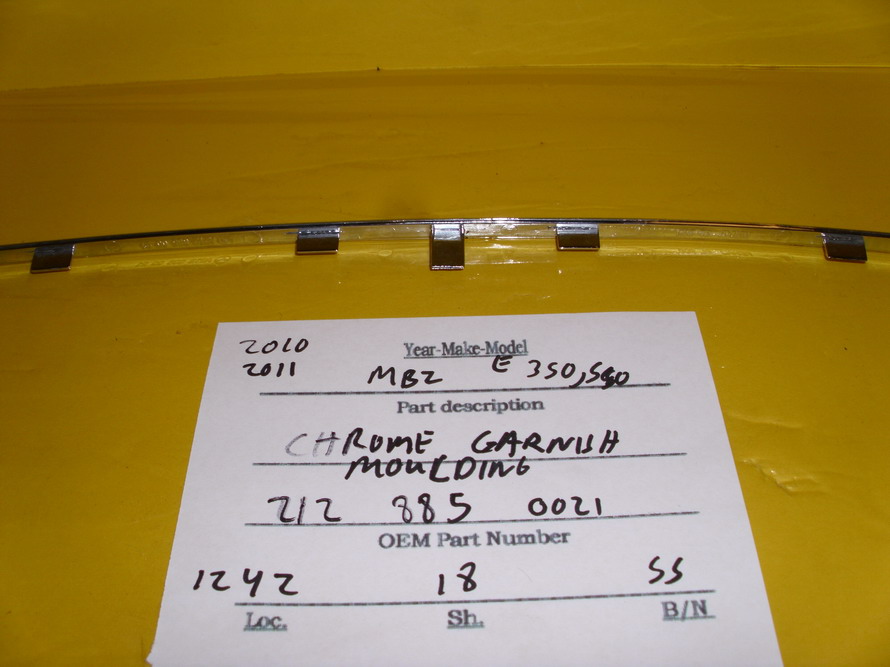 2010
Year-Make-Model
2011 MBZ E 350,550
Part description
CHROME GARNISH
MOULDING
212 885 0021
OEM Part Number
1242 18 SS
Loc. Sh. B/N